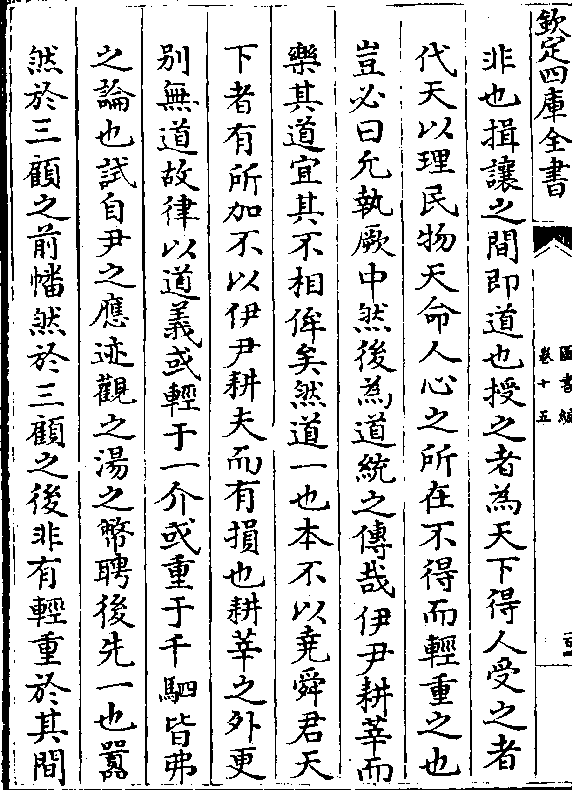 欽定四庫全書
圖書編
卷十五
非也揖讓之間即道也授之者為天下得人受之者
代天以理民物天命人心之所在不得而輕重之也
豈必曰允執厥中然後為道統之傳哉伊尹耕莘而
樂其道宜其不相侔矣然道一也本不以堯舜君天
下者有所加不以伊尹耕夫而有損也耕莘之外更
別無道故律以道義或輕于一介或重于千駟皆弗
之論也試自尹之應迹觀之湯之幣聘後先一也囂
然於三顧之前幡然於三顧之後非有輕重於其間